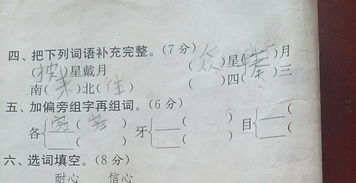 四、把下列词语补充完整。(7分)
(披)星戴月 (众)星( )月
南(来)北(往) ( )四( )三
五、加偏旁组字再组词。(6分)
各{客( ) 牙{ ( ) 目{ ( )
( ) ( ) ( )
六、选词填空。(8分)
耐心 信心